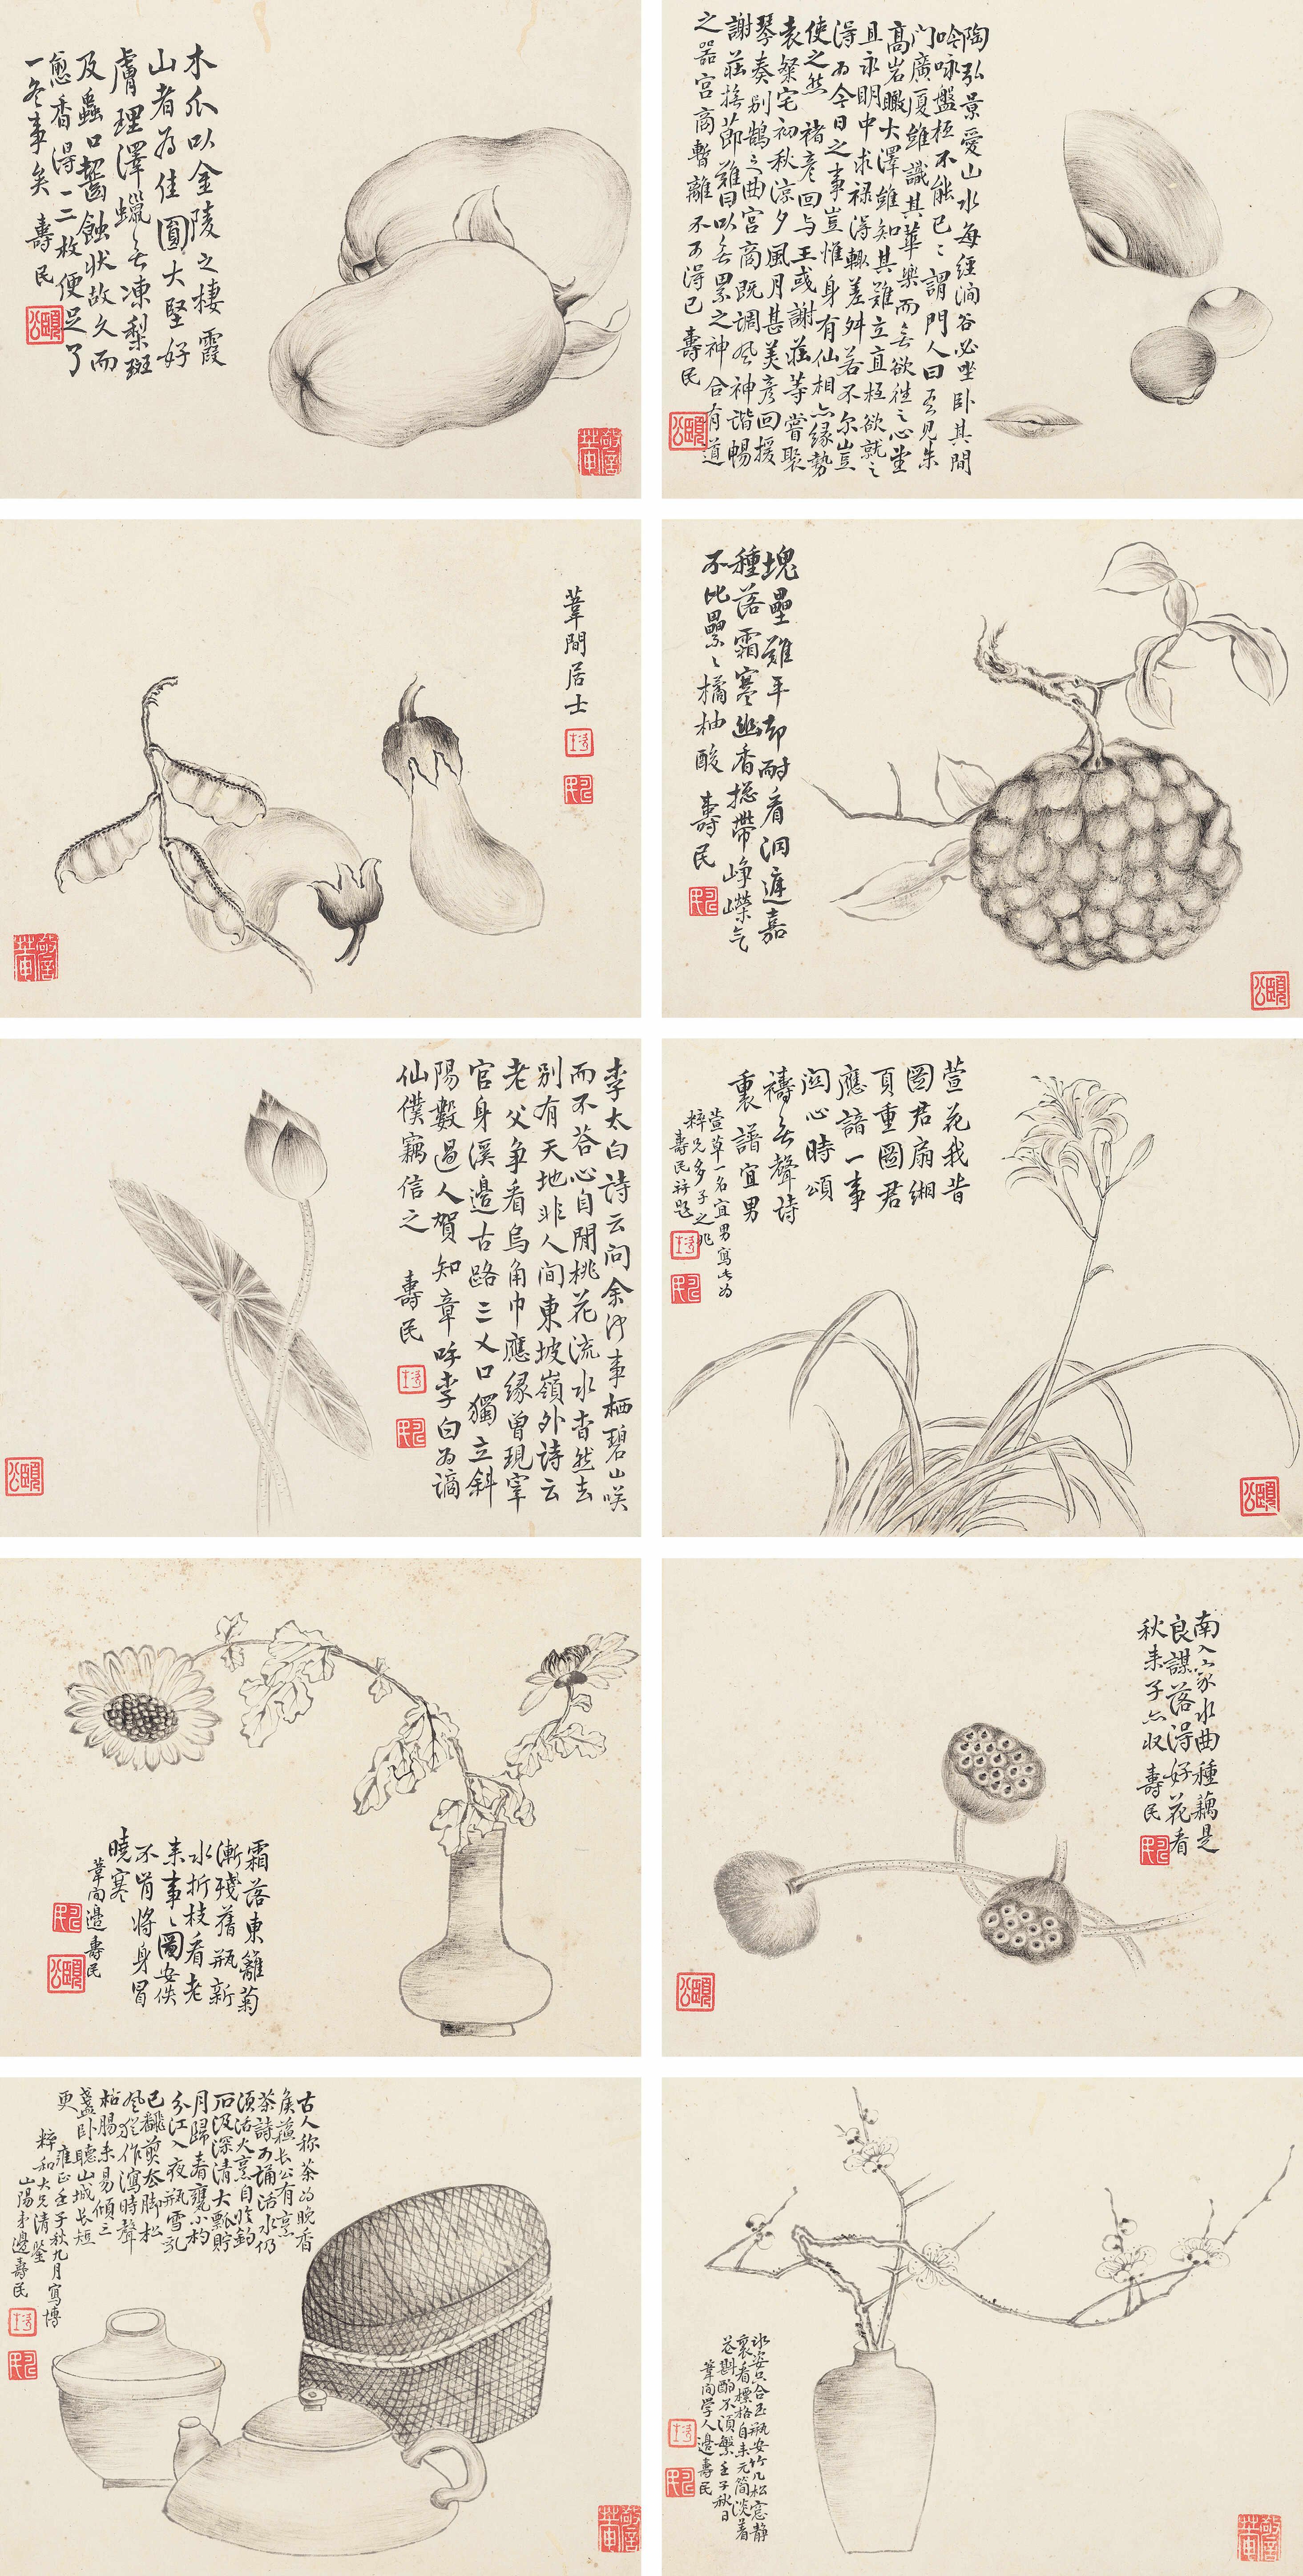 木瓜以金陵之棲霞
山者為佳圓大堅好
膚理澤蠟無凍梨斑
及蟲口齧蝕狀故久而
愈香得一二枚便足了
一冬事矣 壽民
陶弘景愛山水每經澗谷必坐臥其間
吟咏盤桓不能已〻謂門人曰吾見朱
門廣廈雖識其華樂而無欲往之心望
高岩瞰大澤雖知其難立直怪欲就之
且永明中求祿得輒差舛若不尔豈
得為今日之事豈惟身有仙相亦緣勢
使之然 褚彥回与王彧謝莊等嘗聚
袁粲宅初秋涼夕風月甚美彥回援
琴奏別鵠之曲宮商既調風神諧暢
謝莊撫節難曰以無累之神合有道
之器宮商暫離不可得已 壽民
葦間居士
塊壘難平却耐看洞庭嘉
種落霜寒幽香揔帶崢嶸气
不比纍〻橘柚酸 壽民
李太白詩云問余何事栖碧山咲
而不荅心自閒桃花流水杳然去
別有天地非人間東坡嶺外詩云
老父爭看烏角巾應緣曾現宰
官身溪邊古路三乂口獨立斜
陽數過人賀知章呼李白為謫
仙僕竊信之 壽民
萱花我昔
圖君扇緗
頁重圖君
應諳一事
関心時頌
禱無聲詩
裏譜宜男
萱草一名宜男寫此為
粹兄多子之兆
壽民并題
霜落東籬菊
漸殘舊瓶新
水折枝看老
來事〻圖安佚
不肯將身冒
曉寒
葦間邊壽民
南入家水曲種藕是
良謀落得好花看
秋來子亦収 壽民
古人称茶為晚香
矦蘓長公有烹
茶詩可誦活水仍
湏活火烹自臨釣
石汲深清大瓢貯
月歸春甕小杓
分江入夜瓶雪乳
已翻煎䖏脚松
風猶作瀉時聲
枯腸未易傾三
盞卧聽山城長短
更
雍正壬子秋九月寫博
粹和大兄清鑒
山陽弟邊壽民
冰姿只合玉瓶安竹几松窓靜
裏看標格自來元簡淡著
花斟酌不湏繁壬子秋日
葦間學人邊壽民